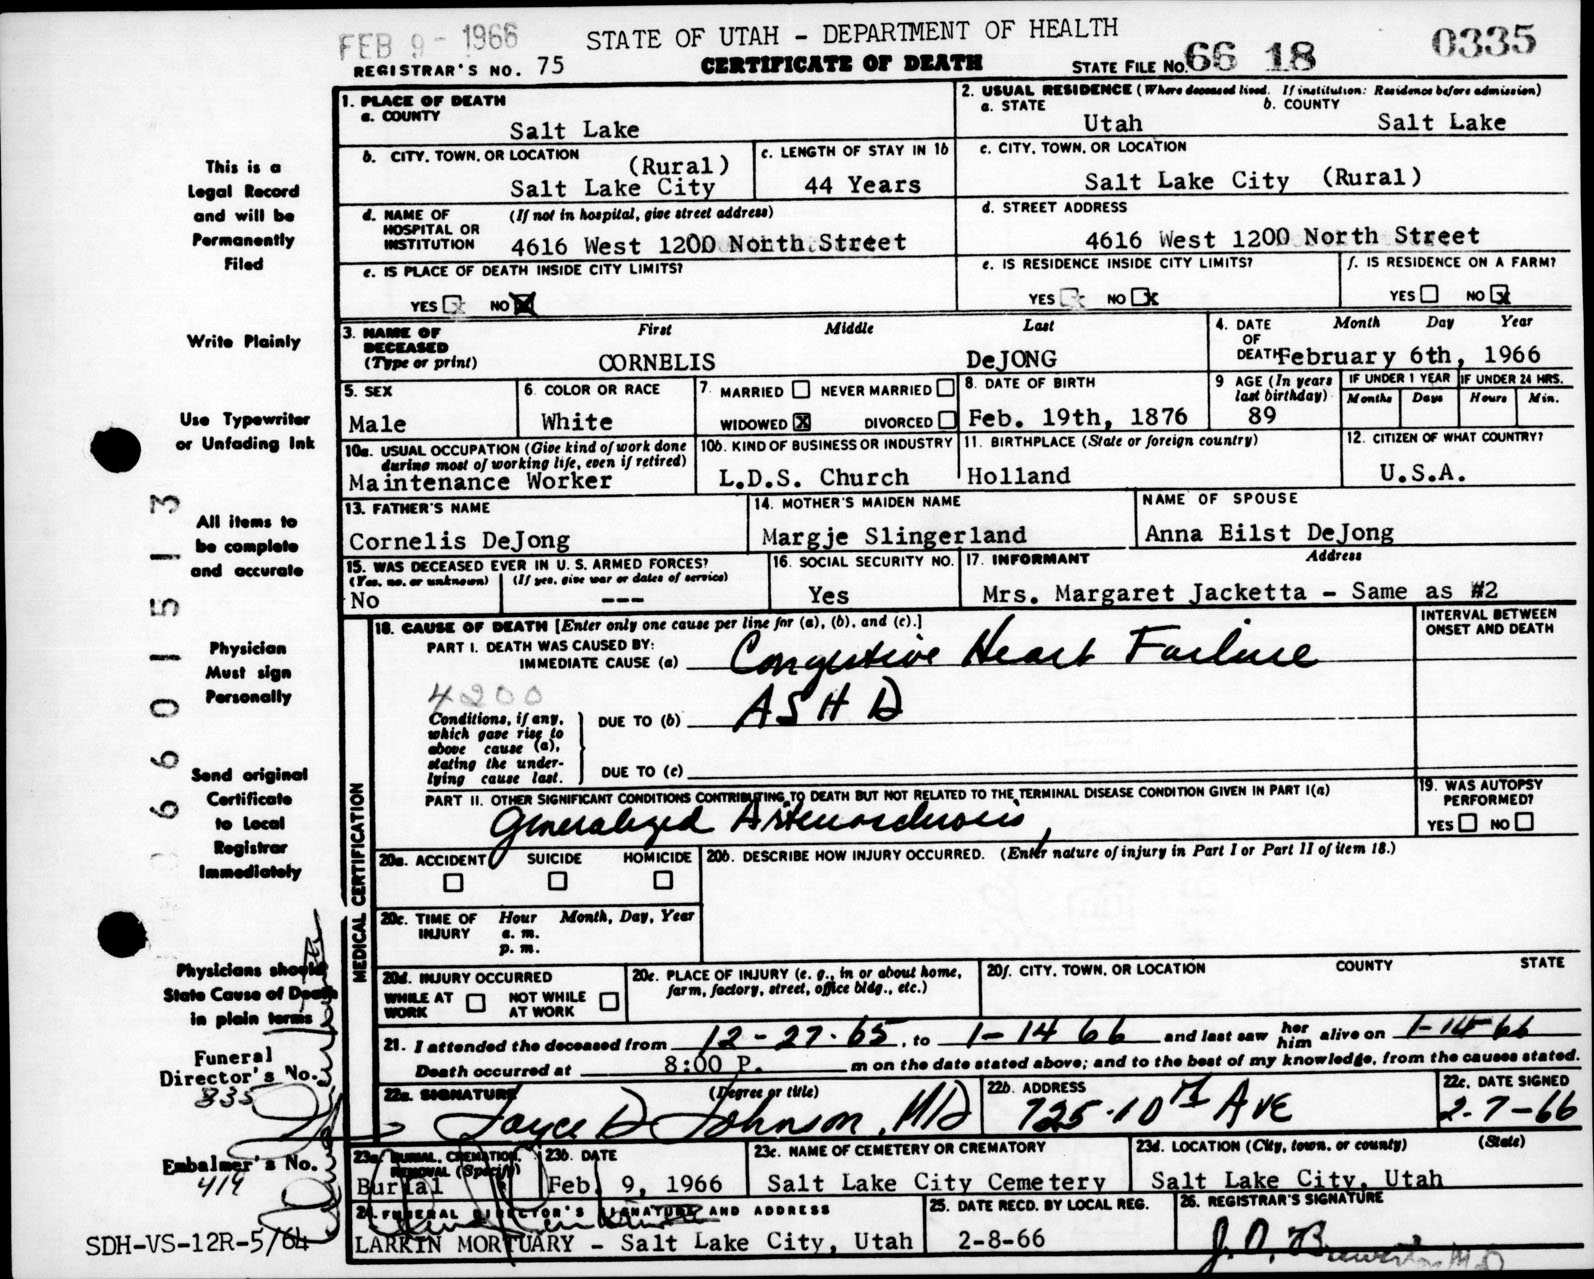 FEB 9 - 1966
STATE OF UTAH - DEPARTMENT OF HEALTH
0335
REGISTRAR'S NO. 75
CERTIFICATE OF DEATH
STATE FILE NO. 66 18
1. PLACE OF DEATH
a. COUNTY
Salt Lake
2. USUAL RESIDENCE (Where deceased lived. If institution: Residence before admission)
a. STATE
Utah
b. COUNTY
Salt Lake
b. CITY, TOWN, OR LOCATION
(Rural)
Salt Lake City
c. LENGTH OF STAY IN 1b
44 Years
c. CITY, TOWN, OR LOCATION
Salt Lake City (Rural)
d. NAME OF HOSPITAL OR INSTITUTION
(If not in hospital, give street address)
4616 West 1200 North Street
d. STREET ADDRESS
4616 West 1200 North Street
e. IS PLACE OF DEATH INSIDE CITY LIMITS?
YES NO X
e. IS RESIDENCE INSIDE CITY LIMITS?
YES NO X
f. IS RESIDENCE ON A FARM?
YES NO X
3. NAME OF DECEASED
(Type or print)
First Middle Last
CORNELIS DeJONG
4. DATE OF DEATH
Month Day Year
February 6th, 1966
5. SEX
Male
6. COLOR OR RACE
White
7. MARRIED NEVER MARRIED
WIDOWED X DIVORCED
8. DATE OF BIRTH
Feb. 19th, 1876
9 AGE (In years last birthday)
89
IF UNDER 1 YEAR
Months Days
IF UNDER 24 HRS.
Hours Min.
10a. USUAL OCCUPATION (Give kind of work done during most of working life, even if retired)
Maintenance Worker
10b. KIND OF BUSINESS OR INDUSTRY
L.D.S. Church
11. BIRTHPLACE (State or foreign country)
Holland
12. CITIZEN OF WHAT COUNTRY?
U.S.A.
13. FATHER'S NAME
Cornelis DeJong
14. MOTHER'S MAIDEN NAME
Margje Slingerland
NAME OF SPOUSE
Anna Eilst DeJong
15. WAS DECEASED EVER IN U. S. ARMED FORCES?
(Yes, no, or unknown) (If yes, give war or dates of service)
No ---
16. SOCIAL SECURITY NO.
Yes
17. INFORMANT Address
Mrs. Margaret Jacketta - Same as #2
18. CAUSE OF DEATH [Enter only one cause per line for (a), (b), and (c).]
INTERVAL BETWEEN ONSET AND DEATH
PART I. DEATH WAS CAUSED BY:
IMMEDIATE CAUSE (a) Congestive Heart Failure
4200
Conditions, if any, which gave rise to above cause (a), stating the underlying cause last.
DUE TO (b) ASHD
DUE TO (c)
PART II. OTHER SIGNIFICANT CONDITIONS CONTRIBUTING TO DEATH BUT NOT RELATED TO THE TERMINAL DISEASE CONDITION GIVEN IN PART I(a)
Generalized Arteriosclerosis
19. WAS AUTOPSY PERFORMED?
YES NO
MEDICAL CERTIFICATION
20a. ACCIDENT SUICIDE HOMICIDE
20b. DESCRIBE HOW INJURY OCCURRED. (Enter nature of injury in Part I or Part II of item 18.)
20c. TIME OF INJURY Hour Month, Day, Year
a. m.
p. m.
20d. INJURY OCCURRED
WHILE AT WORK NOT WHILE AT WORK
20e. PLACE OF INJURY (e. g., in or about home, farm, factory, street, office bldg., etc.)
20f. CITY, TOWN, OR LOCATION COUNTY STATE
21. I attended the deceased from 12-27-65, to 1-14 66 and last saw her him alive on 1-14-66
Death occurred at 8:00 P. m on the date stated above; and to the best of my knowledge, from the causes stated.
22a. SIGNATURE (Degree or title)
Joyce D Johnson, MD
22b. ADDRESS
725-10th AVE
22c. DATE SIGNED
2-7-66
23a. BURIAL, CREMATION, REMOVAL (Specify)
Burial
23b. DATE
Feb. 9, 1966
23c. NAME OF CEMETERY OR CREMATORY
Salt Lake City Cemetery
23d. LOCATION (City, town, or county) (State)
Salt Lake City, Utah
24. FUNERAL DIRECTOR'S SIGNATURE AND ADDRESS
LARKIN MORTUARY - Salt Lake City, Utah
25. DATE RECD. BY LOCAL REG.
2-8-66
26. REGISTRAR'S SIGNATURE
This is a
Legal Record
and will be
Permanently
Filed
Write Plainly
Use Typewriter
or Unfading Ink
All items to
be complete
and accurate
Physician
Must sign
Personally
Send original
Certificate
to Local
Registrar
Immediately
Physicians should
State Cause of Death
in plain terms
Funeral
Director's No.
835
Embalmer's No.
419
SDH-VS-12R-5/64
66 015 - 13